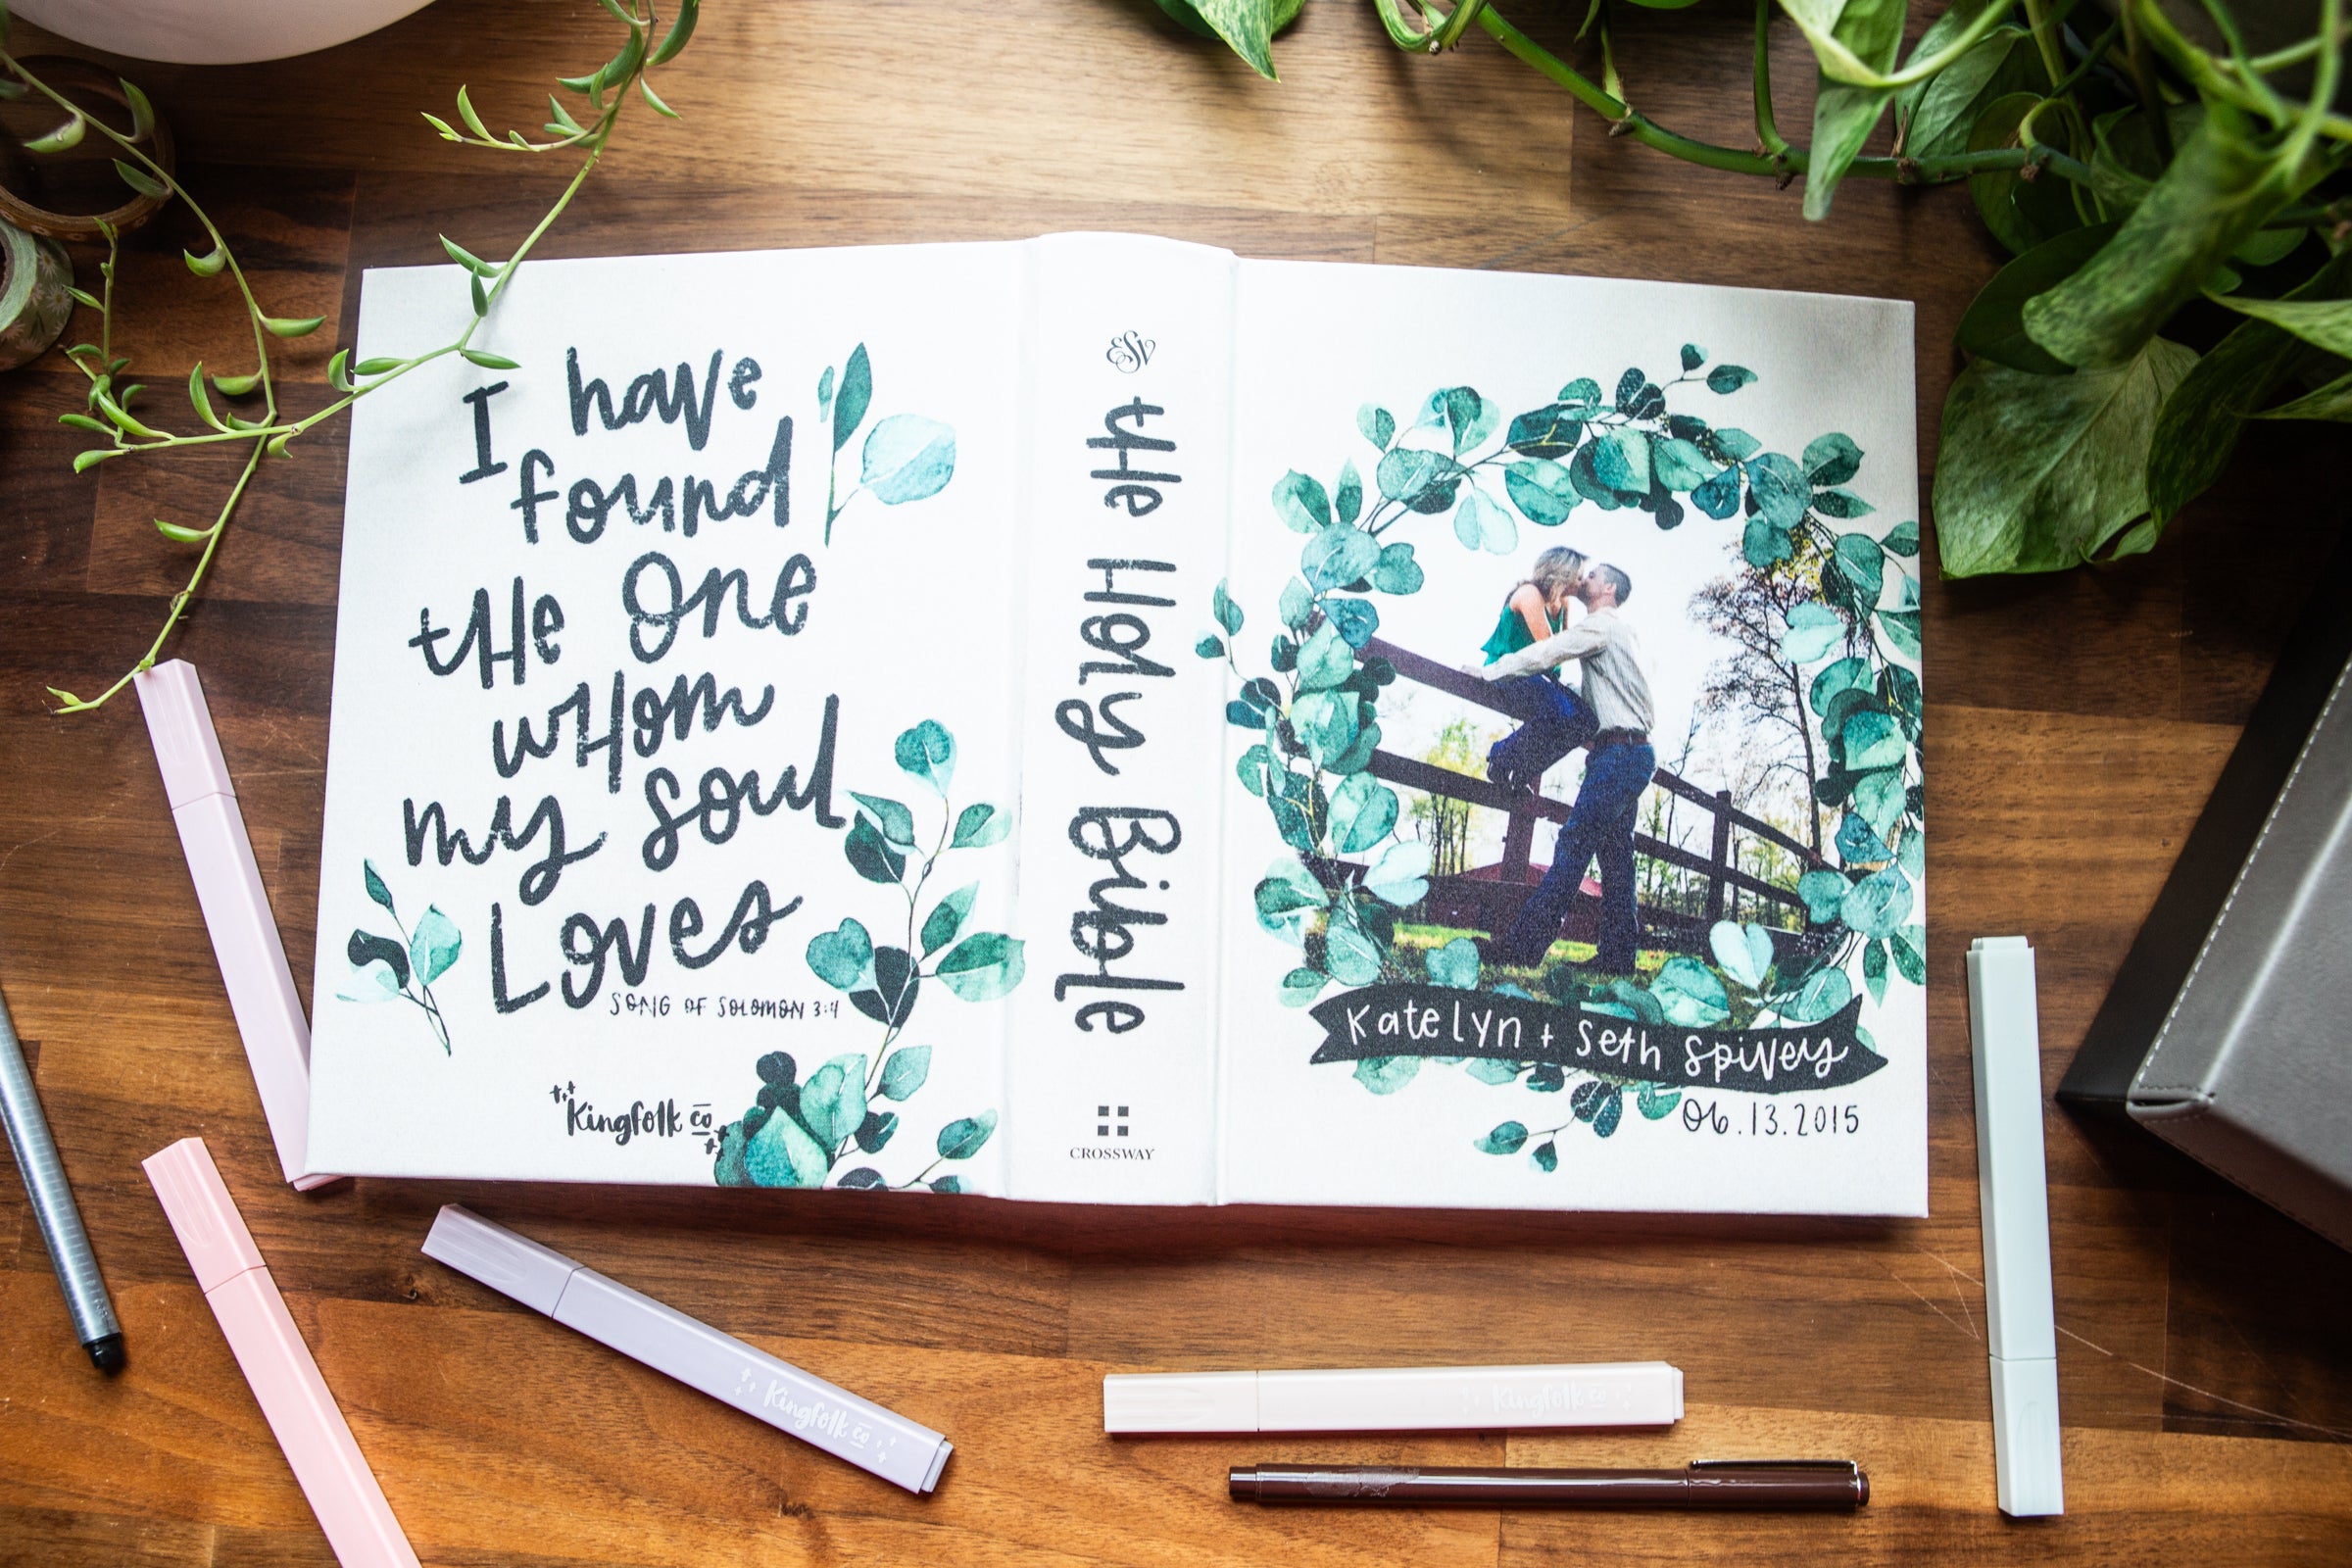 I have
found
the one
whom
my soul
Loves
SONG OF SOLOMON 3:4
Kingfolk co
ESV
the Holy Bible
CROSSWAY
Katelyn + Seth Spivey
06.13.2015
Kingfolk co
Kingfolk co